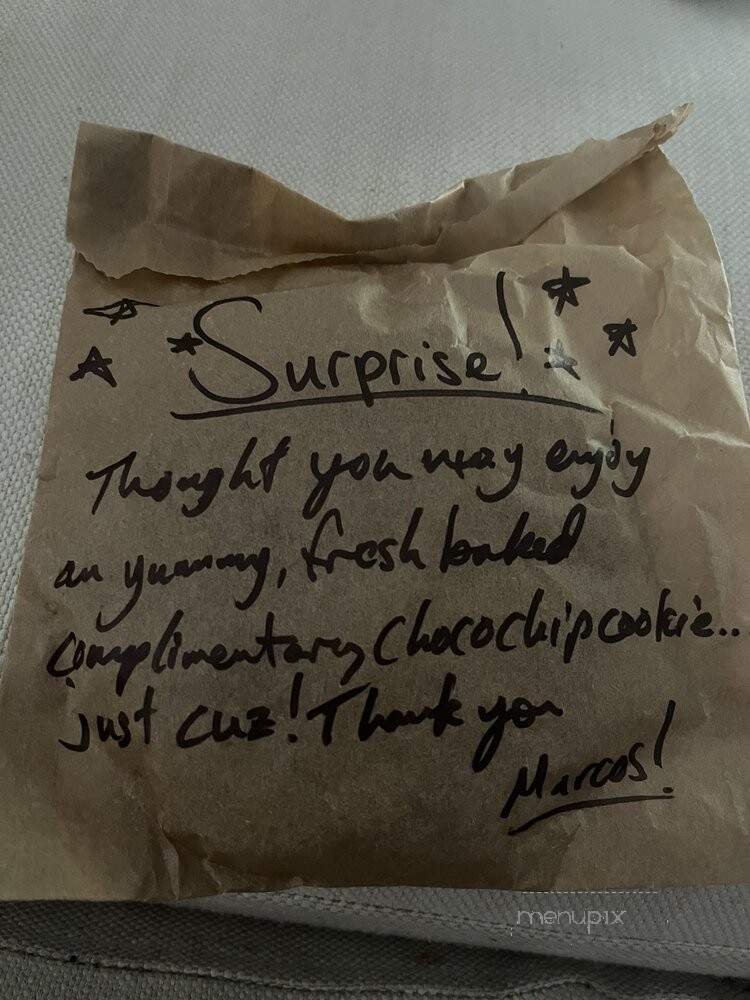 Surprise!
Thought you may enjoy
an yummy, fresh baked
complimentary Chocochip cookie..
just cuz! Thank you
Marcos!
menupix